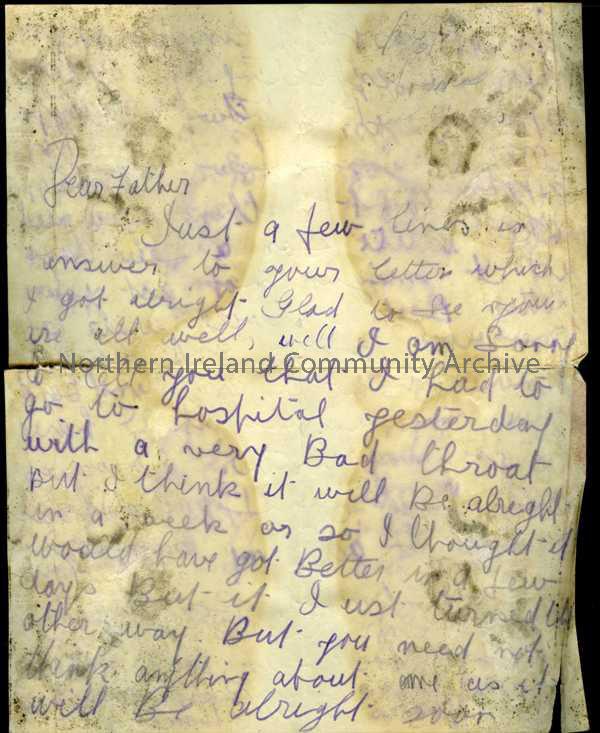 Dear Father
Just a few lines in
answer to your letter which
I got alright Glad to see you
are all well, well I am Sorry
to tell you that I had to
Northern Ireland Community Archive
go to hospital yesterday
with a very Bad throat
But I think it will Be alright
in a week or so I thought it
would have got Better in a few
days But it Just turned the
other way. But you need not
think anything about me as it
will Be alright soon